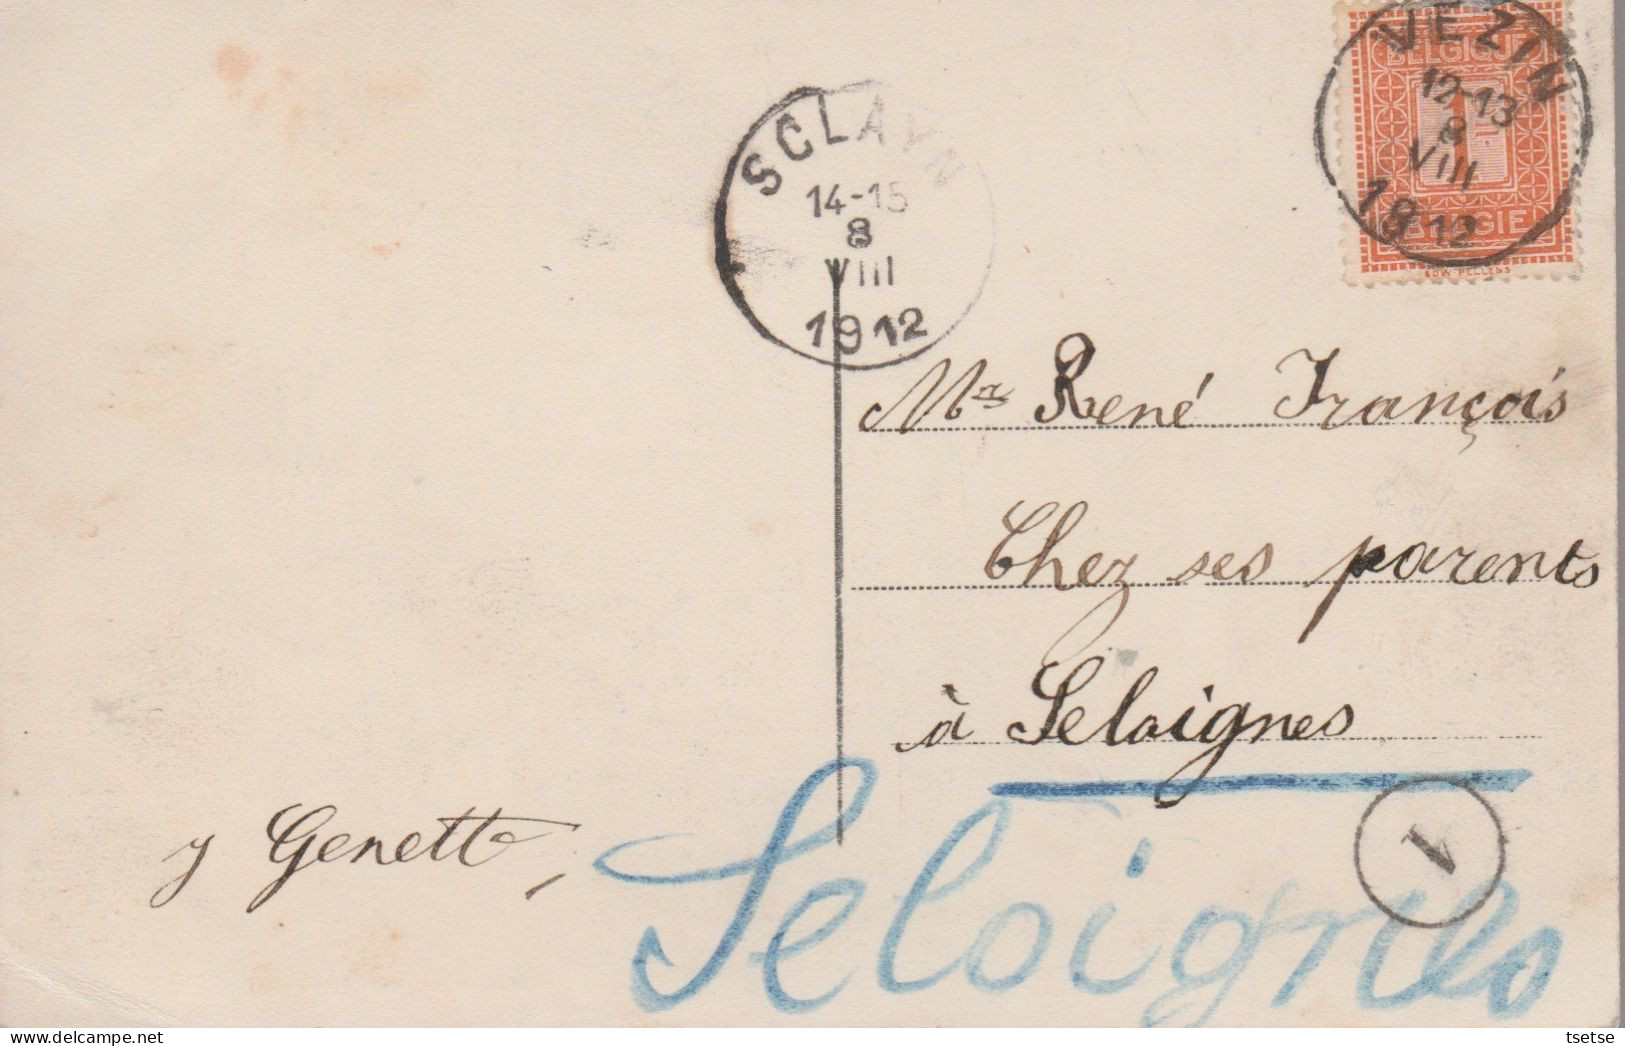 BELGIQUE
1
BELGIE
VEZIN
12-13
8
VIII
1912
SCLAYN
14-15
8
VIII
1912
Mr René François
Chez ses parents
à Seloignes
y Genette,
Seloignes
1
tsetse